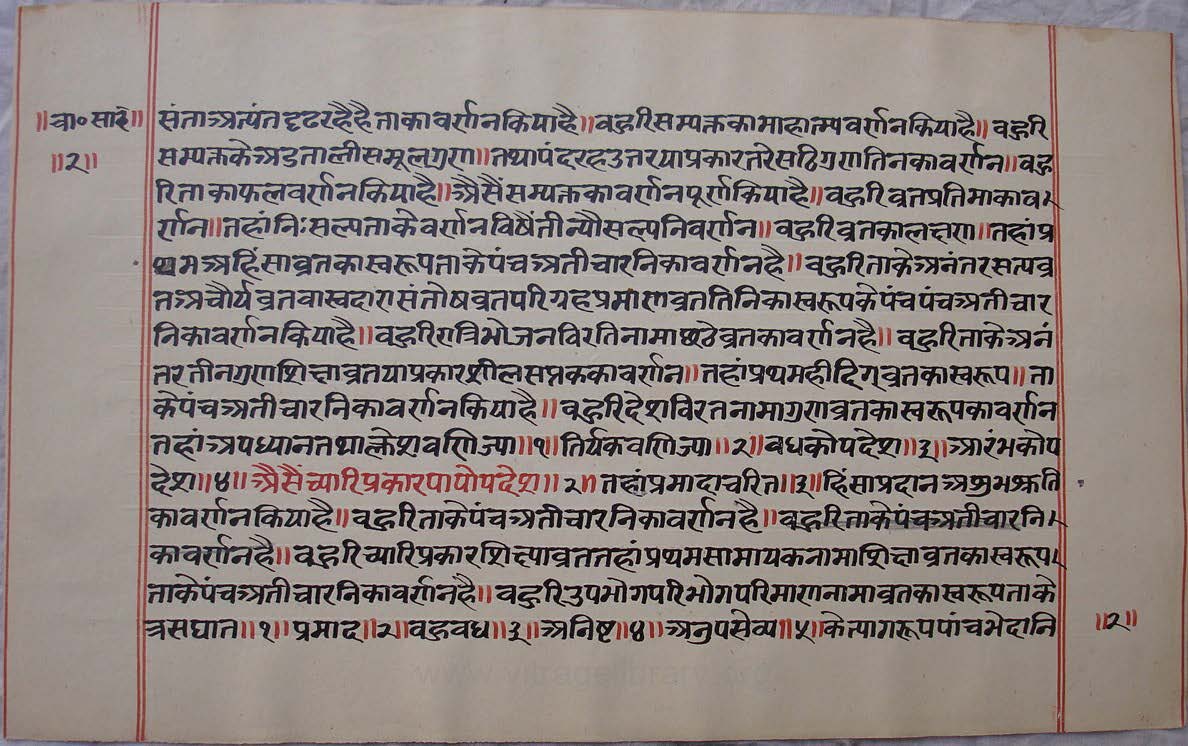 ॥चा० सारै॥ संताअत्पंतद्दढरहैहैताकावर्णनकियाहै॥बहुरिसम्यक्तकामाहात्म्यवर्णनकियाहै॥बहुरि
॥२॥ सम्यक्तकेअडतालीसमूलगुण॥तथापंदरहउत्तरयाप्रकारतरेसठिगुणतिनकावर्णन॥बहु
रिताकाफलवर्णनकियाहै॥अैसैंसम्यक्तकावर्णनपूर्णकियाहै॥बहुरिव्रतप्रतिमाकाव
र्णन॥तहांनिःसल्पताकेवर्णनविषैंतीन्यौसल्पनिवर्णन॥बहुरिव्रतकालक्षण॥तहांप्र
थमअहिंसाव्रतकास्वरूपताकेपंचअतीचारनिकावर्णनहै॥बहुरिताकेअनंतरसत्पव्र
तअचौर्यव्रतवास्वदारासंतोषव्रतपरिग्रहप्रमाणव्रततिनिकास्वरूपकेपंचपंचअतीचार
निकावर्णनकियाहै॥बहुरिरात्रिभोजनविरतिनामाछठेव्रतकावर्णनहै॥बहुरिताकेअनं
तरतीनगुणशिक्षाव्रतयाप्रकारशीलसप्तककावर्णन॥तहांप्रथमहीदिग्व्रतकास्वरूप॥ता
केपंचअतीचारनिकावर्णनकियाहै॥बहुरिदेशविरतनामागुणव्रतकास्वरूपकावर्णन
तहांअपध्यानतथाक्लेशवणिज्या॥१॥तिर्यकवणिज्या॥२॥बधकोपदेश॥३॥आरंभकोप
देश॥४॥अैसैंच्यारिप्रकारपापोपदेश॥२॥तहांप्रमादाचरित॥३॥हिंसाप्रदानअशुभश्रुति
कावर्णनकियाहै॥बहुरिताकेपंचअतीचारनिकावर्णनहै॥बहुरिताकेपंचअतीचारनि
कावर्णनहै॥बहुरिच्यारिप्रकारशिक्षाव्रततहांप्रथमसामायकनामाशिक्षाव्रतकास्वरूप
ताकेपंचअतीचारनिकावर्णनहै॥बहुरिउपभोगपरिभोगपरिमाणनामाव्रतकास्वरूपताके
त्रसघात॥१॥प्रमाद॥२॥बहुवध॥३॥अनिष्ट॥४॥अनुपसेव्य॥५॥केत्यागरूपपांचभेदानि ॥२॥
www.vitragelibrary.org